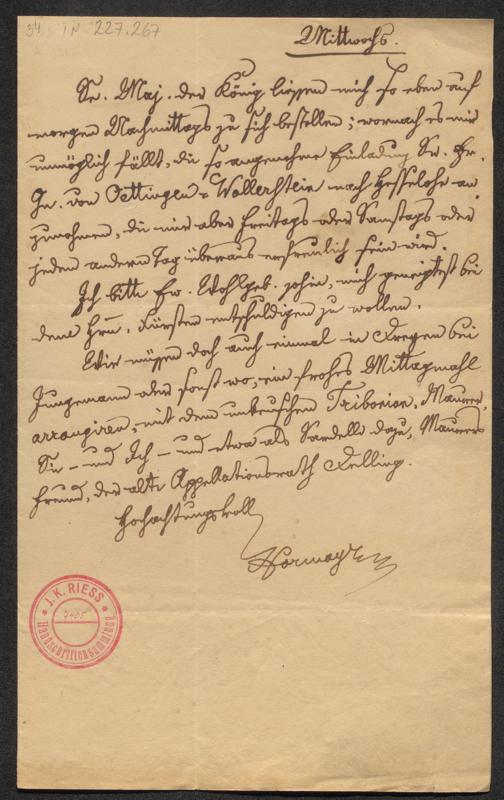 34 IN 227.267
Mittwochs.
Se. Maj. der König liessen mich so eben auf
morgen Nachmittags zu sich bestellen; wornach es mir
unmöglich fällt, die so angenehme Einladung Sr. Hr.
Gn. von Oettingen-Wallerstein nach Hesselohe an
zunehmen, die mir aber freitags oder Samstags oder
jeden andern Tag überaus erfreulich sein wird.
Ich bitte Ew. Wohlgeb. mich geneigtest bei
dem Hrn. Fürsten entschuldigen zu wollen.
Wir müssen doch auch einmal in bei
Jungemann oder sonst wo, ein frohes Mittagmahl
arrangiren, mit dem unkeuschen Tribonian, Maurer,
Sie – und Ich – und etwa als Sardelle dazu, Maurers
Freund, der alte Appellationsrath
Hochachtungsvoll
Hormayr
J. K. RIESS
7405
Handschriftensammlung